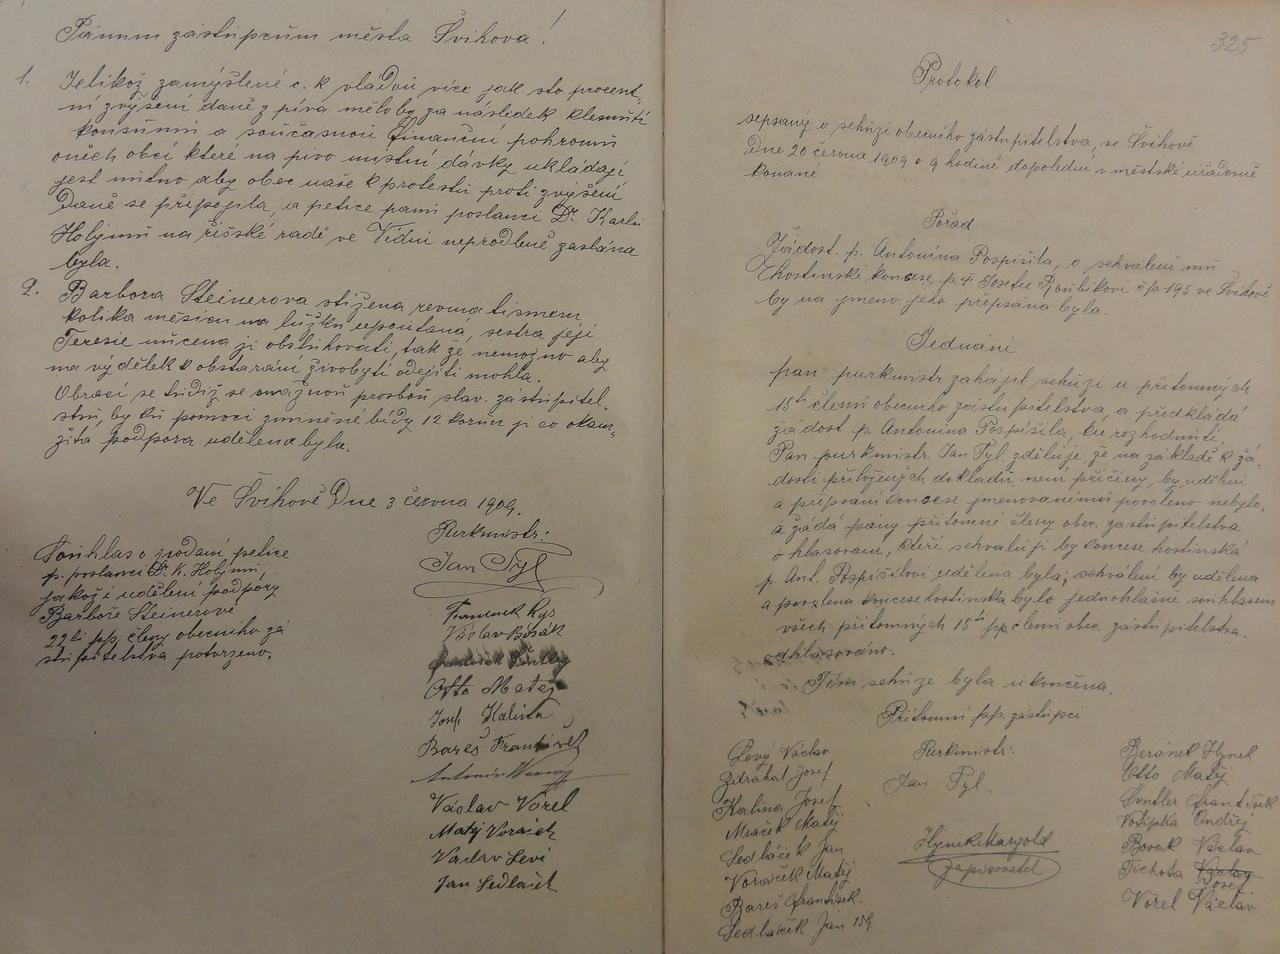 Pánům zástupcům města Švihova!
1. Jelikož zamýšlené c. k. vládou více jak sto procent-
ní zvýšení daně z piva mělo by za následek klesnutí
konsumu a současnou finanční pohromu
oněch obcí které na pivo místní dávky ukládají
jest nutno aby obec naše k protestu proti zvýšení
Daně se připojila, a petice panu poslanci Dr. Karlu
Holýmu na říšské radě ve Vídni neprodleně zaslána
byla.
2. Barbora Steinerova stižena revmatismem
kolika měsícu na lůžku upoutaná, sestra její
Teresie nucena ji obsluhovati, tak že nemožno aby
na výdělek k obstarání živobytí odejíti mohla.
Obrací se tudiž se snažnou prosbou slav. zastupitel-
stvu, by ku pomoci zmírněné bídy 12 korun jí co okam-
žitá podpora udělena byla.
Ve Švihově Dne 3 června 1909.
Purkmistr:
Jan Tyl
Souhlas o podání petice
p. poslanci Dr. K. Holýmu,
jakož i udělení podpory
Barboře Steinerové
22ti pp. členy obecního za
stupitelstva potvrzeno.
Václav Bosák
Otto Matěj
Josef Kalina
Bareš František
Václav Vorel
Matěj Voráček
Vaclav Levi
Jan Sedlaček
325
Protokol
sepsaný o schůzi obecního zástupitelstva, ve Švihově
Dne 20 června 1909 o 9 hodině dopolední v městské úřadovně
konané
Pořad
Žádost p. Antonína Pospíšila, o schválení mu
hostinské koncese, p. Josefu Roubíkovi čp 195 ve Švihově
by na jmeno jeho přepsána byla.
Jednání
pan purkmistr zahájil schůzi u přítomných
15ti členů obecního zástupitelstva, a předkládá
žádost p. Antonína Pospíšila, ku rozhodnutí.
Pan purkmistr Jan Tyl zděluje, že na základě k žá-
dosti přiložených dokladů, není příčiny, by udělení
a připsání koncese jmenovanému povoleno nebylo,
a žádá pány přítomné členy obec. zastupitelstva
o hlasovaní, kteří schvalují by koncese hostinská
p. Ant. Pospíšilovi udělena byla; schválení by udělena
a povolena koncese hostinska bylo jednohlasně souhlasem
všech přítomných 15ti pp členů obec. zástupitelstva.
odhlasováno.
Tím schůze byla ukončena.
Přítomní pp. zástupci
Levý Václav
Zdráhal Josef
Kalina Josef
Mraček Matěj
Sedláček Jan
Voráček Matěj
Bareš František.
Sedlaček Jan 159
Purkmistr:
Jan Tyl.
Hynek Margold
zapisovatel
Beránek Hynek
Otto Matěj
František
Votipka Ondřej
Bosak Václav
Tichota Václav
Josef
Vorel Václav